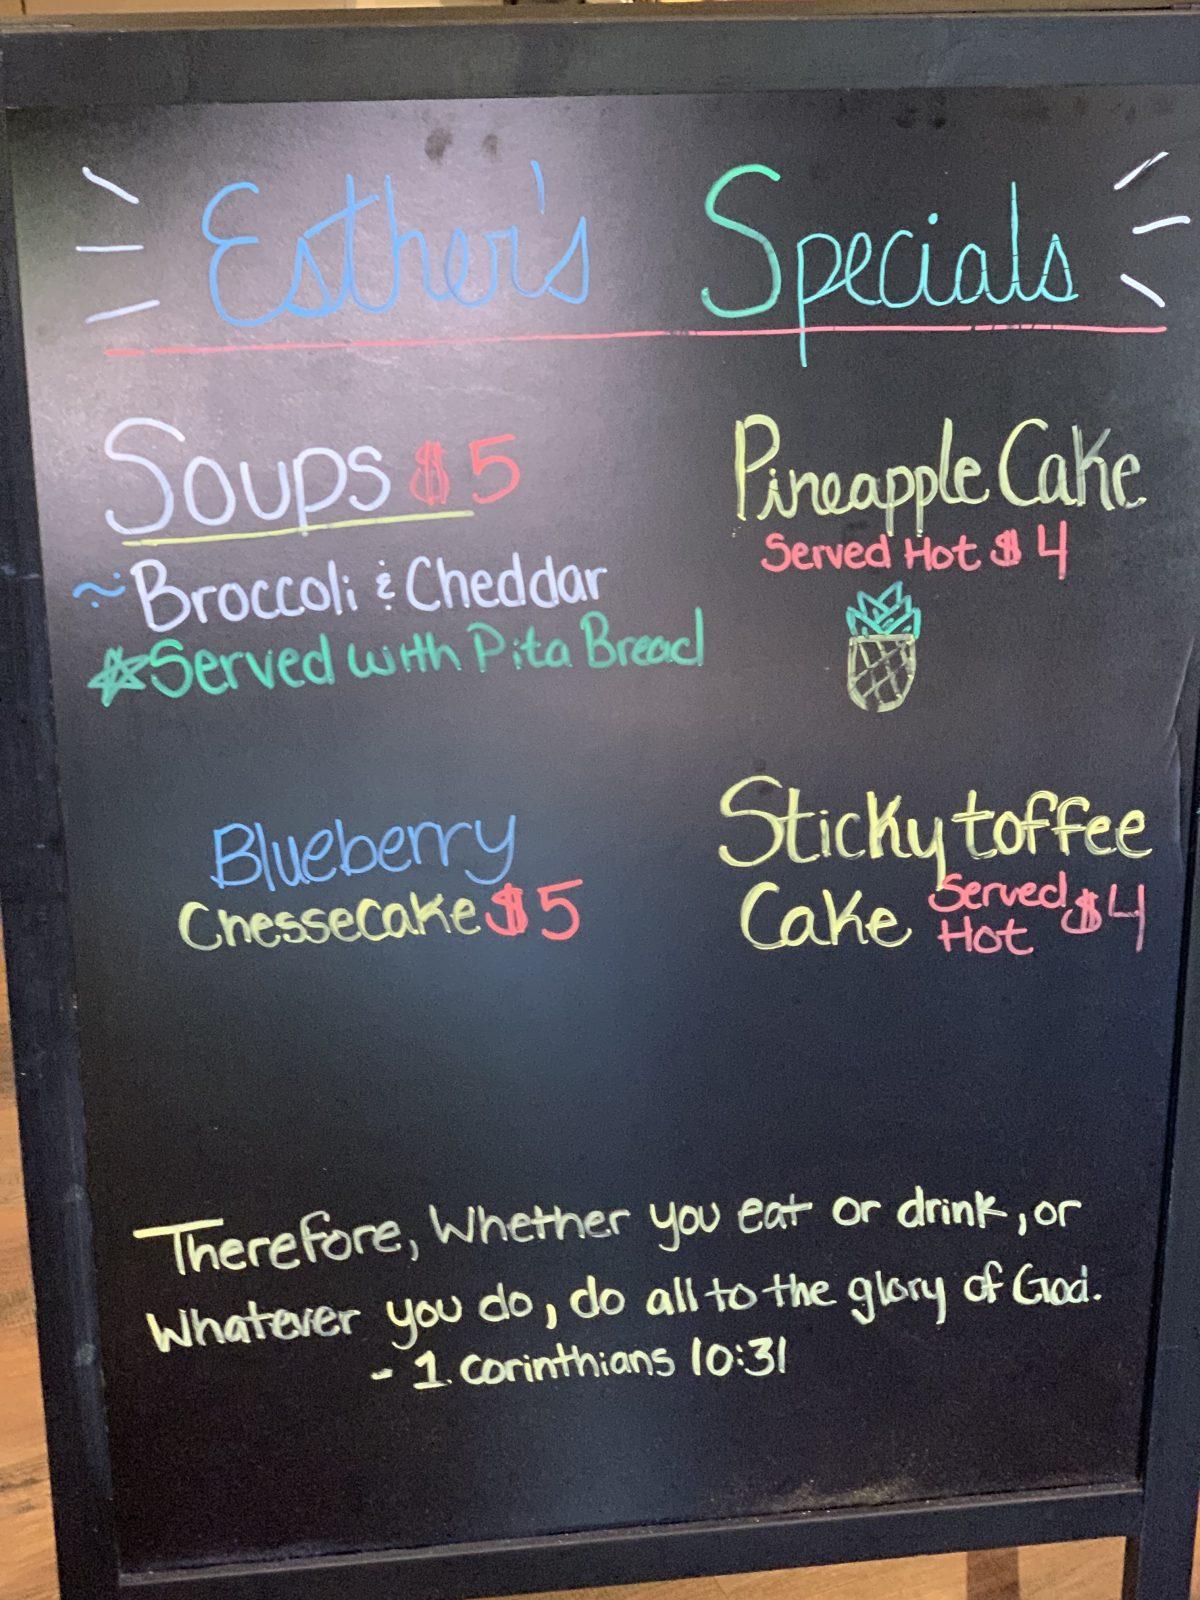 Esther's Specials
Soups $5
~ Broccoli & Cheddar
☆Served with Pita Bread
Blueberry
Chessecake $5
Pineapple Cake
Served Hot $4
Sticky toffee
Cake Served Hot $4
Therefore, Whether you eat or drink, or
Whatever you do, do all to the glory of God.
- 1 Corinthians 10:31